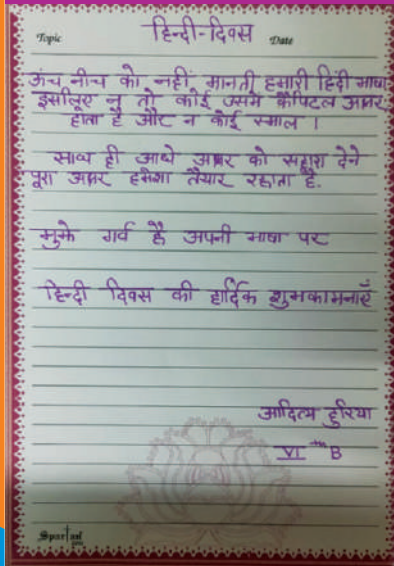 Topic हिन्दी-दिवस Date
ऊंच नीच को नहीं मानती हमारी हिंदी भाषा
इसीलिए न तो कोई उसमें कैपिटल अक्षर
होता है और न कोई स्माल ।
साथ ही आधे अक्षर को सहारा देने
पूरा अक्षर हमेशा तैयार रहता है.
मुझे गर्व है अपनी भाषा पर
हिन्दी दिवस की हार्दिक शुभकामनाएँ
आदित्य हुरिया
VI th B
Spartan